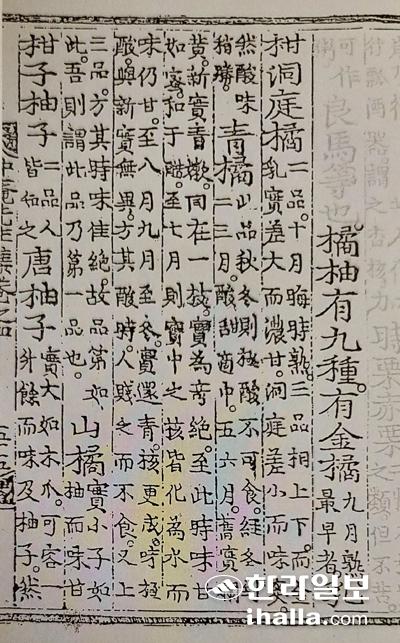 良馬等也
橘柚有九種。有金橘 九月熟
最早者 乳
柑洞庭橘 二品。十月晦時熟。三品相上下。而
乳實差大而濃甘。洞庭差小而味爽。
然酸味
稍勝。 青橘 此品秋冬則極酸。不可食。經冬
二三月。酸甜適中。五六月。舊實
黃。新實青嫩。同在一枝。實爲奇絶。至此時味甘
如蜜和于醋。至七月則實中之核皆化爲水而
味仍甘。至八月九月至冬。實還青。核更成。味極
酸。與新實無異。方其酸時。人賤之而不食。又上
三品。方其時味佳絶。故品第如
此。吾則謂此品乃第一品也。 山橘 實小子如
柚而味甘
柑子柚子 二品人
皆知之 唐柚子 實大如木瓜。可容一
升餘而味及柚子。然
先生集卷之四
한라일보
ihalla.com